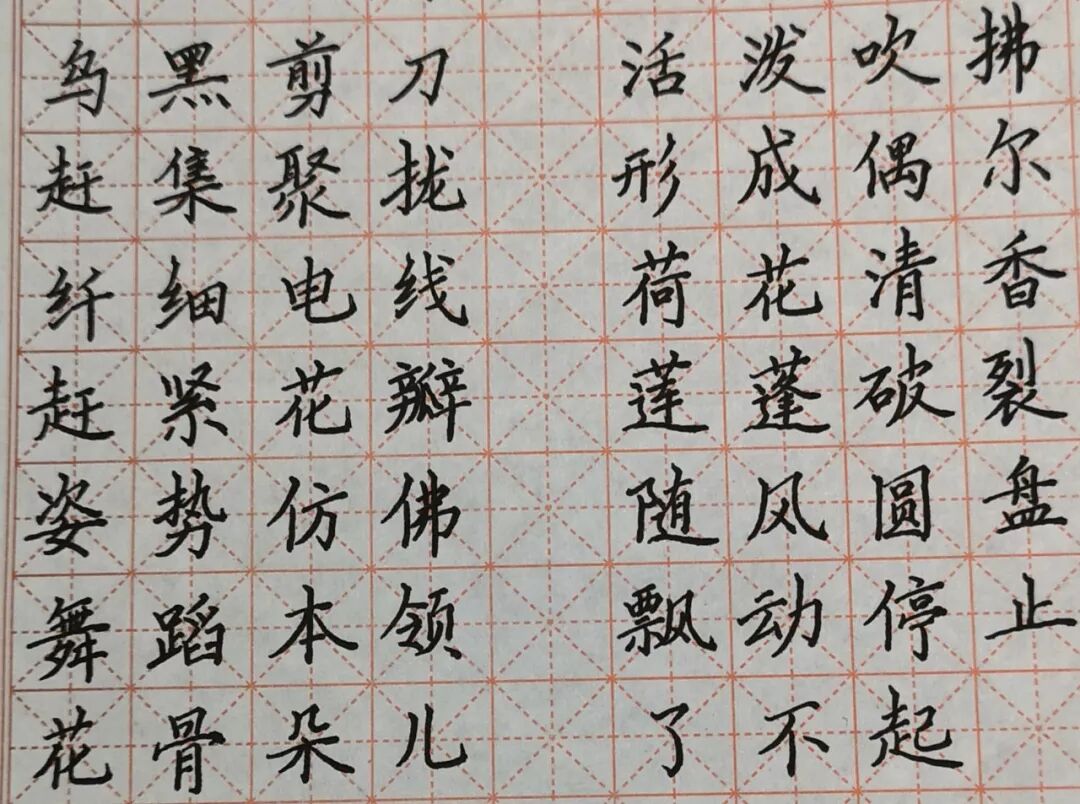 乌黑剪刀 活泼吹拂
赶集聚拢 形成偶尔
纤细电线 荷花清香
赶紧花瓣 莲蓬破裂
姿势仿佛 随风圆盘
舞蹈本领 飘动停止
花骨朵儿 了不起